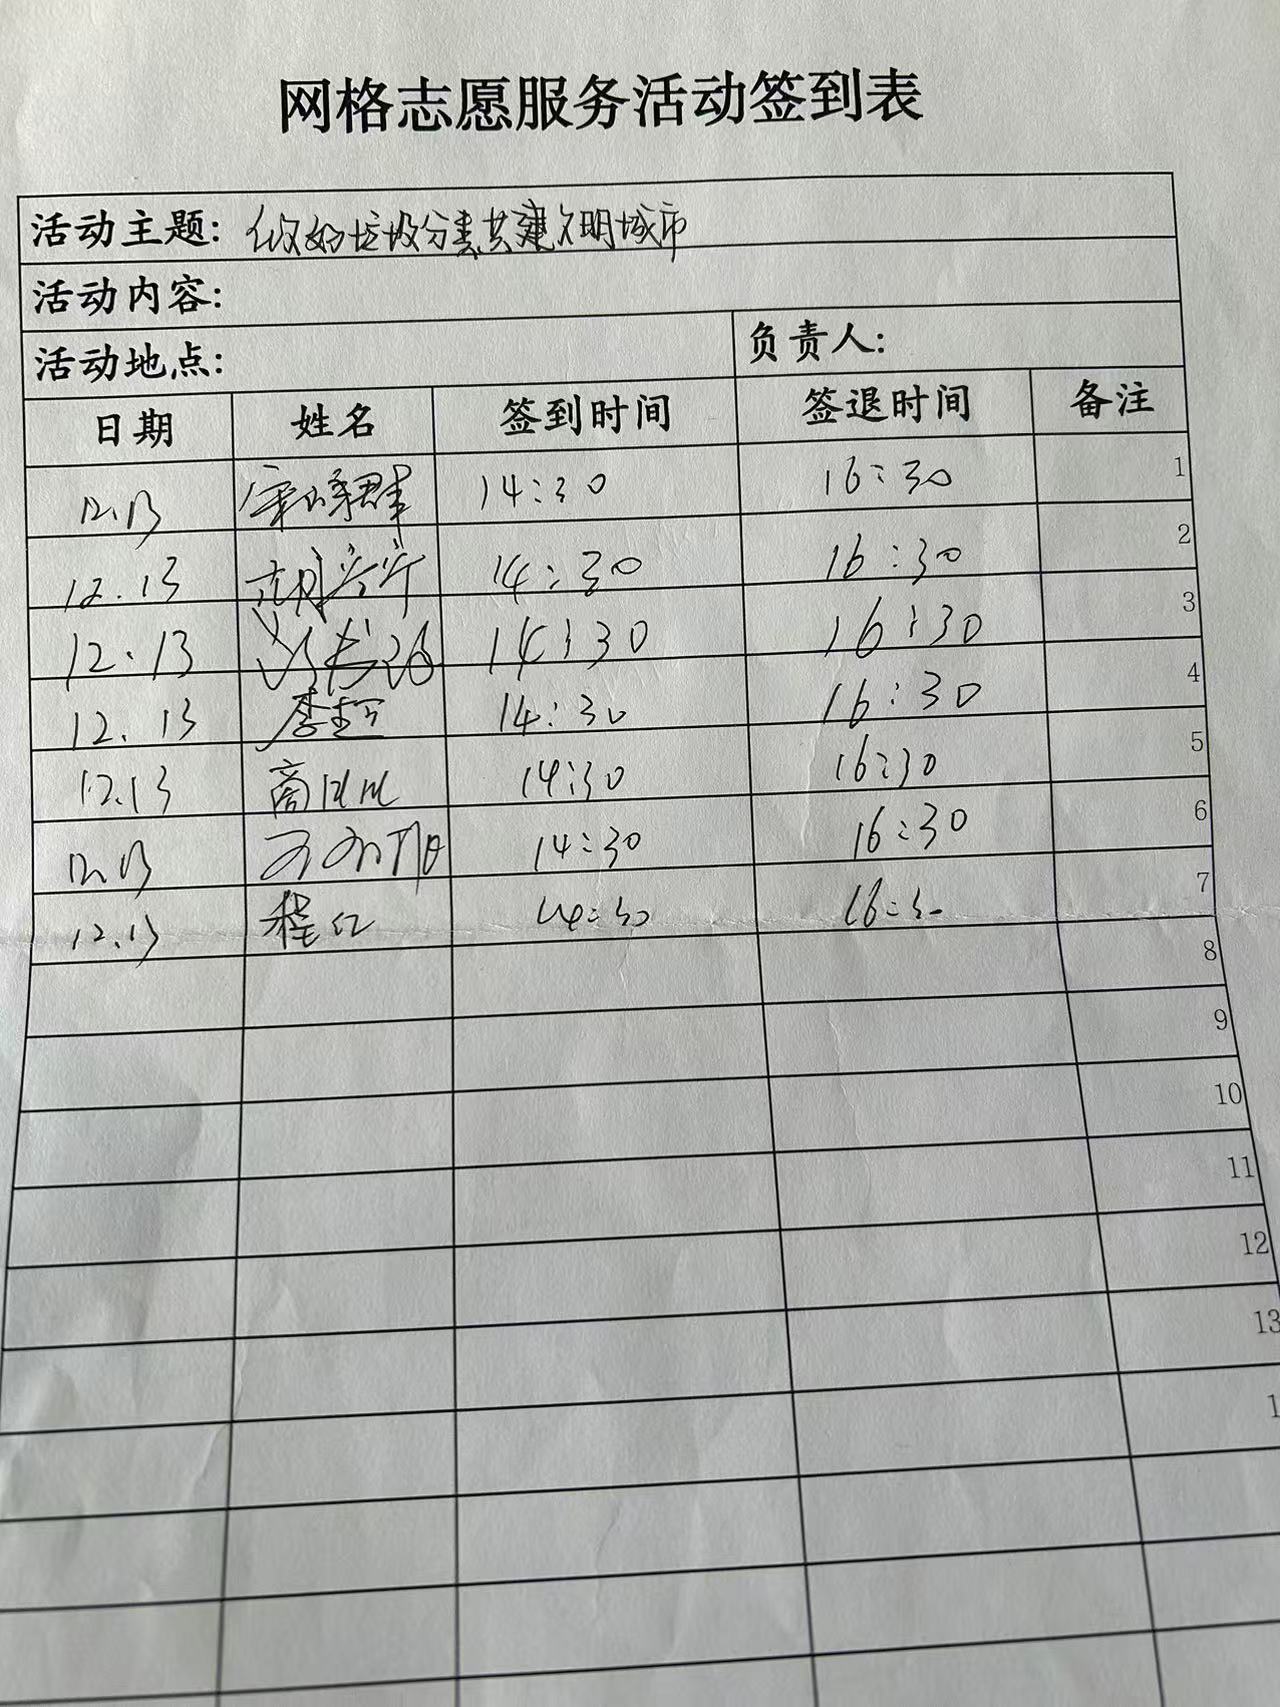 网格志愿服务活动签到表
活动主题: 做好垃圾分类共建文明城市
活动内容:
活动地点: 负责人:
日期 姓名 签到时间 签退时间 备注
12.13 14:30 16:30 1
12.13 胡宁宁 14:30 16:30 2
12.13 14:30 16:30 3
12.13 李 14:30 16:30 4
12.13 商 14:30 16:30 5
12.13 14:30 16:30 6
12.13 程红 14:30 16:30 7
8
9
10
11
12
13
1